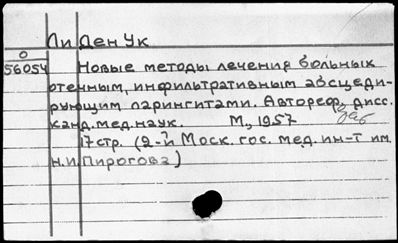 Ли Ден Ук
0
56054
Новые методы лечения больных
отечным, инфильтративным абсцеди-
рующим ларингитами. Автореф. дисс.
канд. мед. наук. М., 1957
17 стр. (2-й Моск. гос. мед. ин-т им.
Н.И Пирогова)